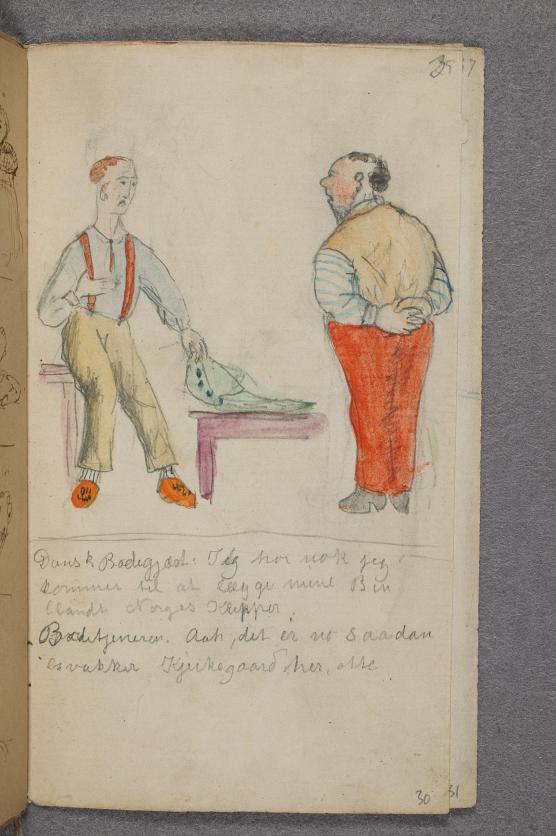 39 17
Dansk Badegjæst: Jeg tror nok jeg
kommer til at lægge mine Ben
blandt Norges Klipper.
Badetjeneren. Aah, det er no saadan
en vakker Kjirkegaard her, otte
30 31